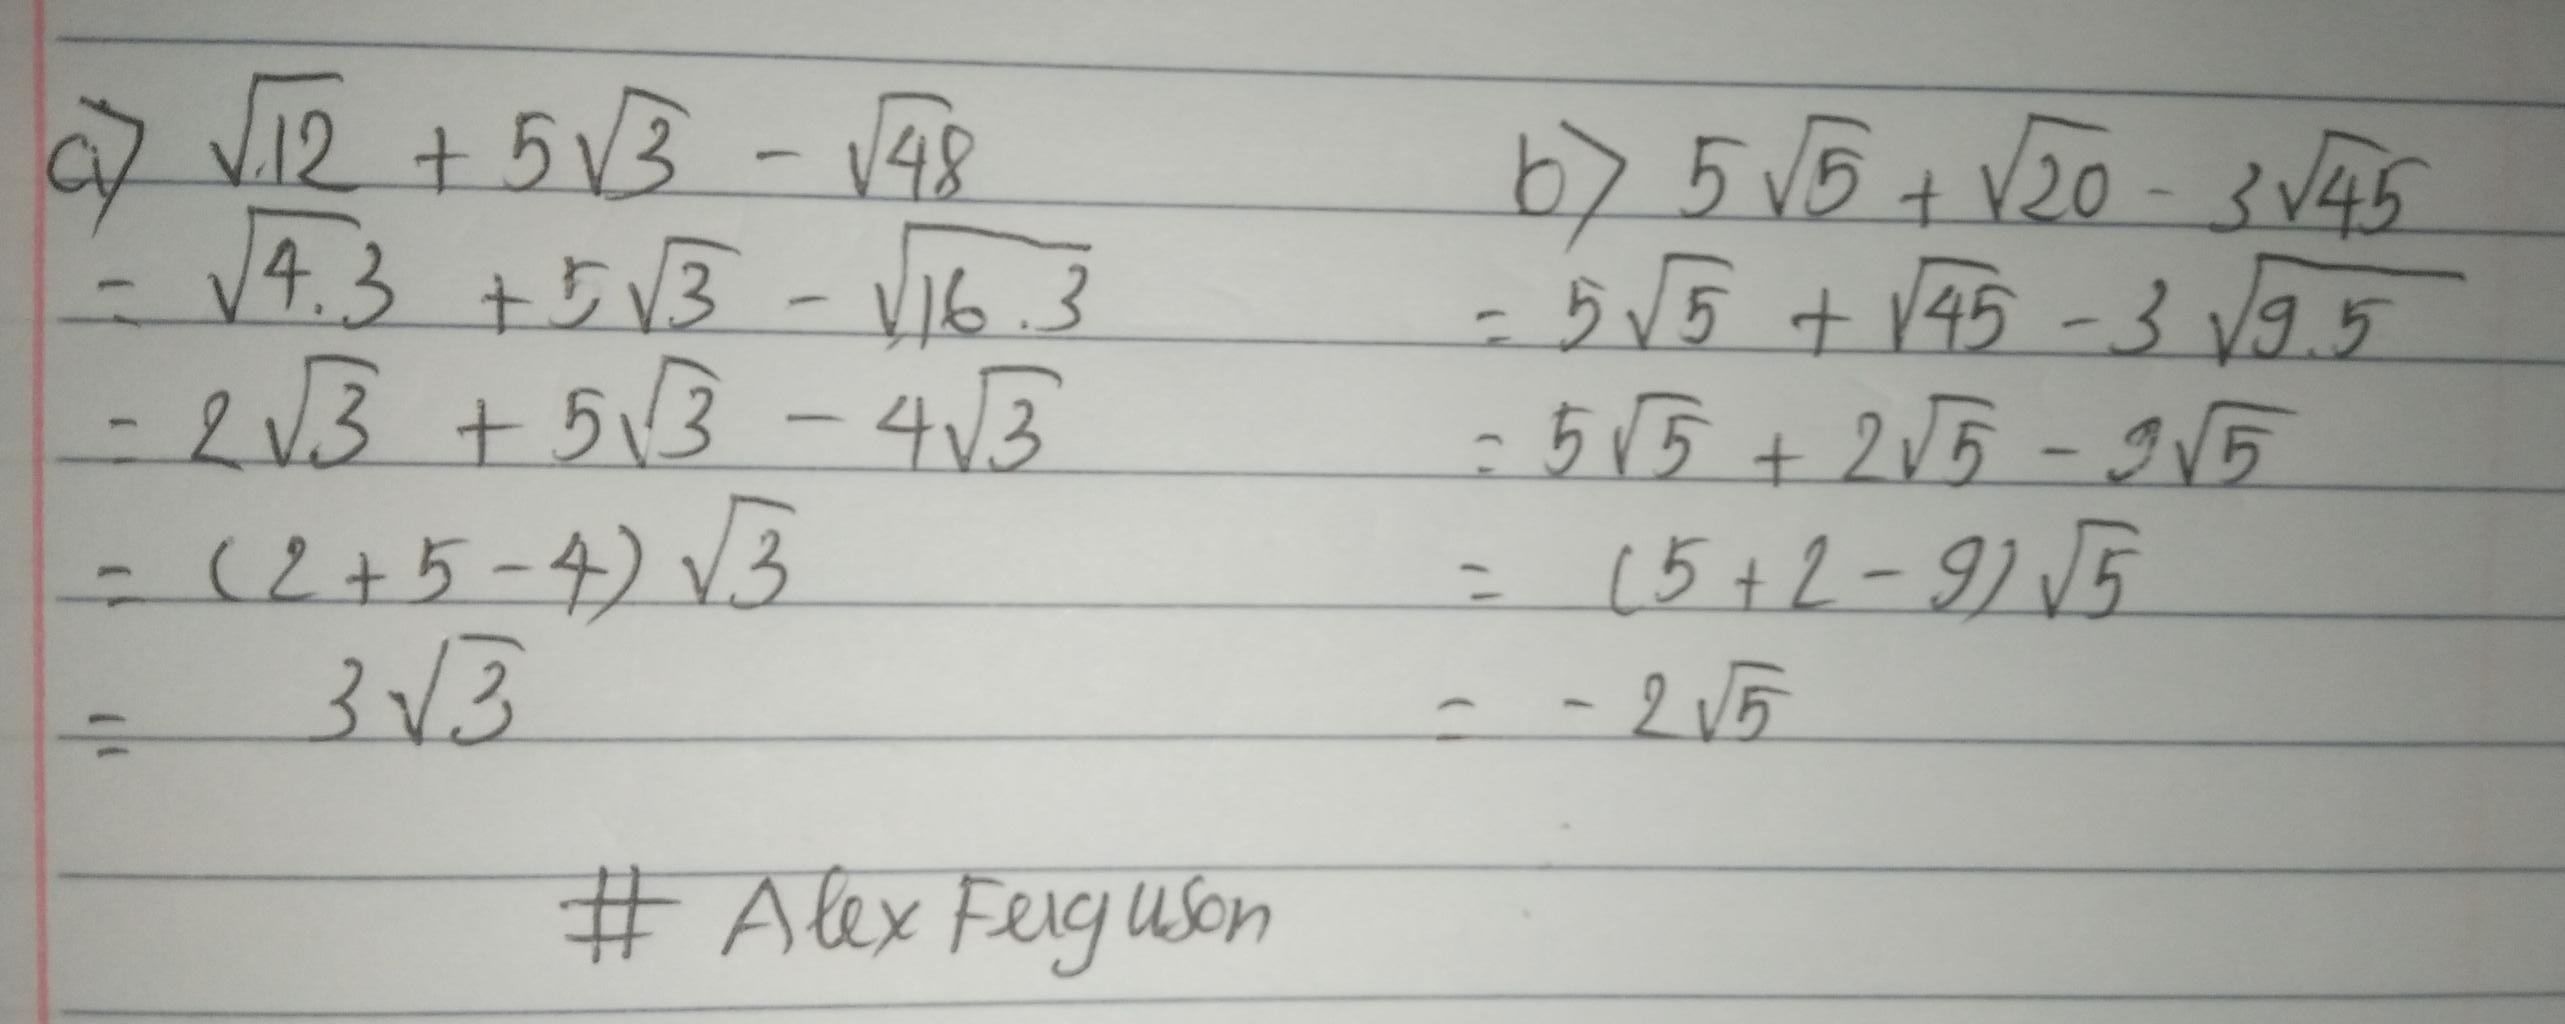 a) √12 + 5√3 - √48
= √4.3 + 5√3 - √16.3
= 2√3 + 5√3 - 4√3
= (2+5-4)√3
= 3√3
b) 5√5 + √20 - 3√45
= 5√5 + √45 - 3√9.5
= 5√5 + 2√5 - 9√5
= (5+2-9)√5
= -2√5
# Alex Ferguson